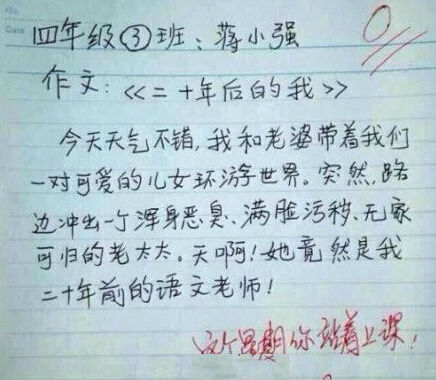 四年级③班：蒋小强
0
作文：《二十年后的我》
今天天气不错,我和老婆带着我们
一对可爱的儿女环游世界。突然,路
边冲出一个浑身恶臭、满脸污秽、无家
可归的老太太。天啊!她竟然是我
二十年前的语文老师!
这个星期你站着上课!